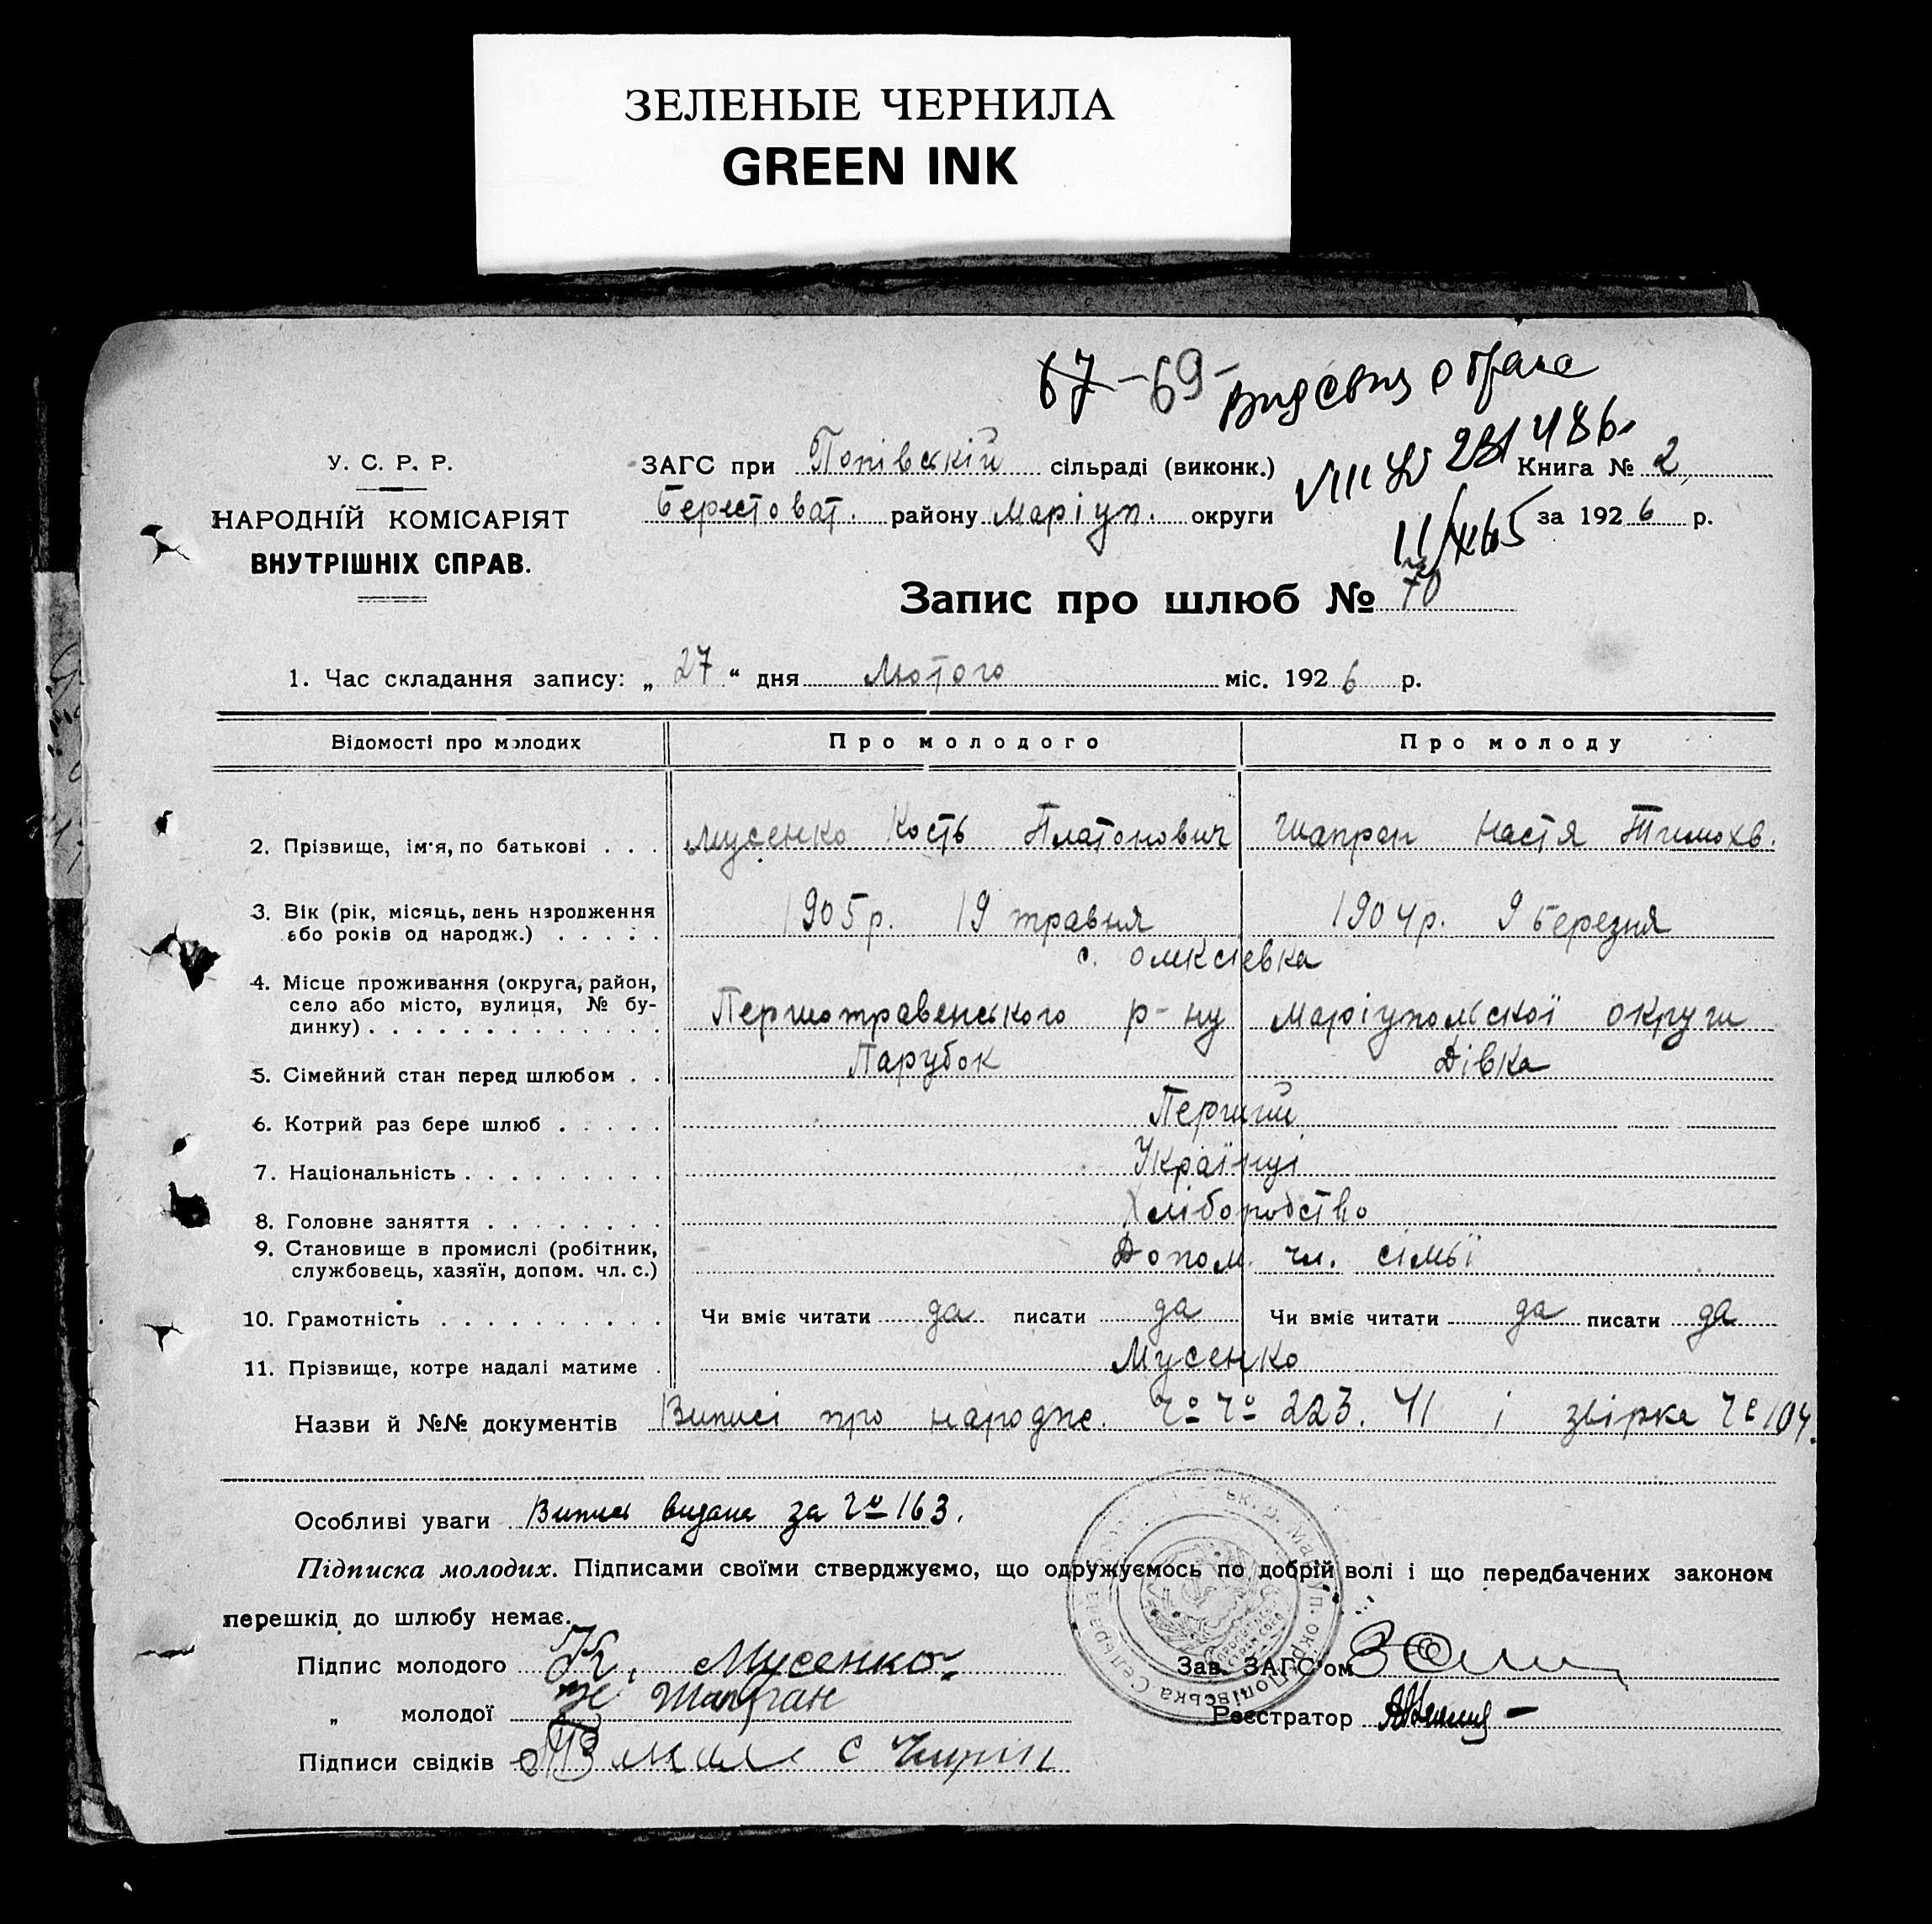 ЗЕЛЕНЫЕ ЧЕРНИЛА
GREEN INK
67-69-
У. С. Р. Р.
НАРОДНІЙ КОМІСАРІЯТ
ВНУТРІШНІХ СПРАВ.
ЗАГС при Попівській сільраді (виконк.)
Книга № 2
Берестоват. району Маріуп. округи
за 1926 р.
Запис про шлюб № 70
1. Час складання запису: „ 27 “ дня Лютого міс. 1926 р.
Відомості про молодих Про молодого Про молоду
2. Прізвище, ім'я, по батькові . . . Мусенко Кость Платонович Шапран Настя Тимохв.
3. Вік (рік, місяць, день народження
або років од народж.) . . . . . 1905 р. 19 травня 1904 р. 9 березня
4. Місце проживання (округа, район,
село або місто, вулиця, № бу-
динку) . . . . . . . . . . . . . с.
Першотравенського р-ну Маріупольскої округи
5. Сімейний стан перед шлюбом . . Парубок Дівка
6. Котрий раз бере шлюб . . . . . Перший
7. Національність . . . . . . . . . Українці
8. Головне заняття . . . . . . . . Хліборобство
9. Становище в промислі (робітник,
службовець, хазяїн, допом. чл. с.) Допом. чл. сімьї
10. Грамотність . . . . . . . . . . Чи вміє читати да писати да Чи вміє читати да писати да
11. Прізвище, котре надалі матиме . Мусенко
Назви й №№ документів Виписі про народже. 223. 41 і звірка 104.
Особливі уваги Випис видана за 163.
Підписка молодих. Підписами своїми стверджуємо, що одружуємось по добрій волі і що передбачених законом
перешкід до шлюбу немає.
Підпис молодого К. Мусенко
Зав. ЗАГС'ом
„ молодої Шапран
Реєстратор
Підписи свідків